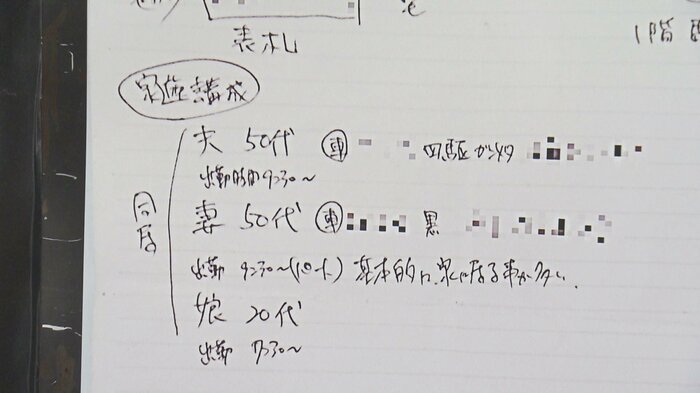 表札
1階
家族構成
同居
夫 50代 車 四駆 ガンメタ
出勤時間 9:30~
妻 50代 車 黒
出勤 9:30~(パート) 基本的に家に居る事が多い。
娘 20代
出勤 7:30~